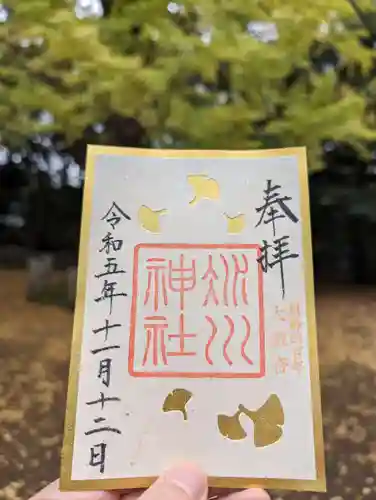 奉拝
大銀杏
氷川
神社
令和五年十一月十二日